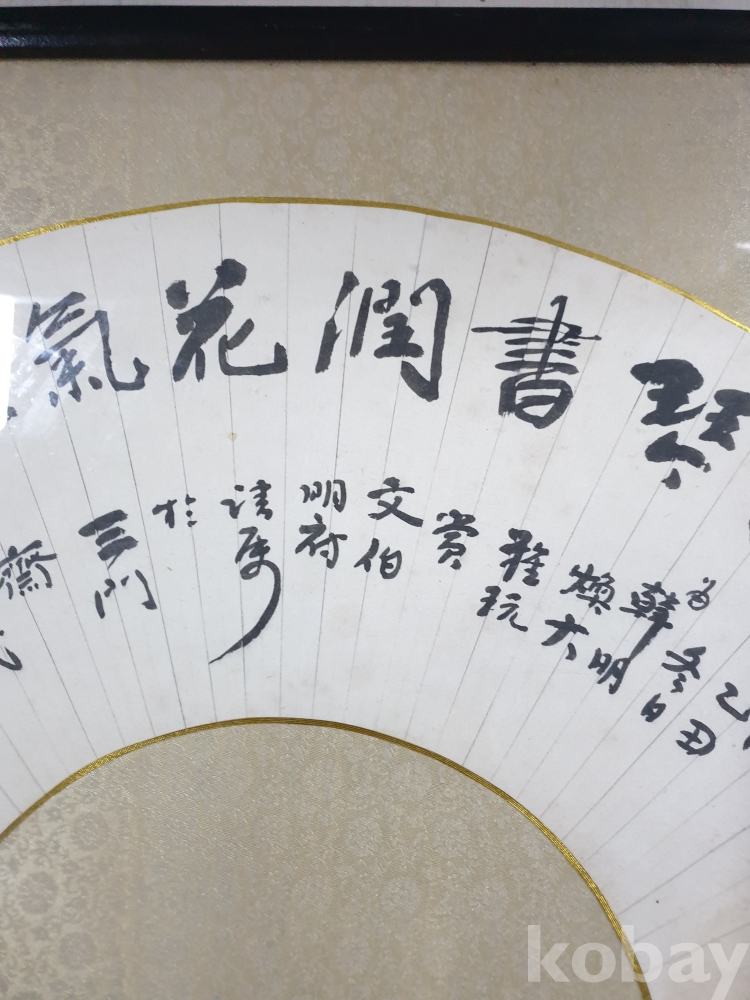 琴書潤花氣
乙丑
冬日為
韓明
煥大
雅玩
賞
文伯
明府
請屬
於
三門
齋
kobay